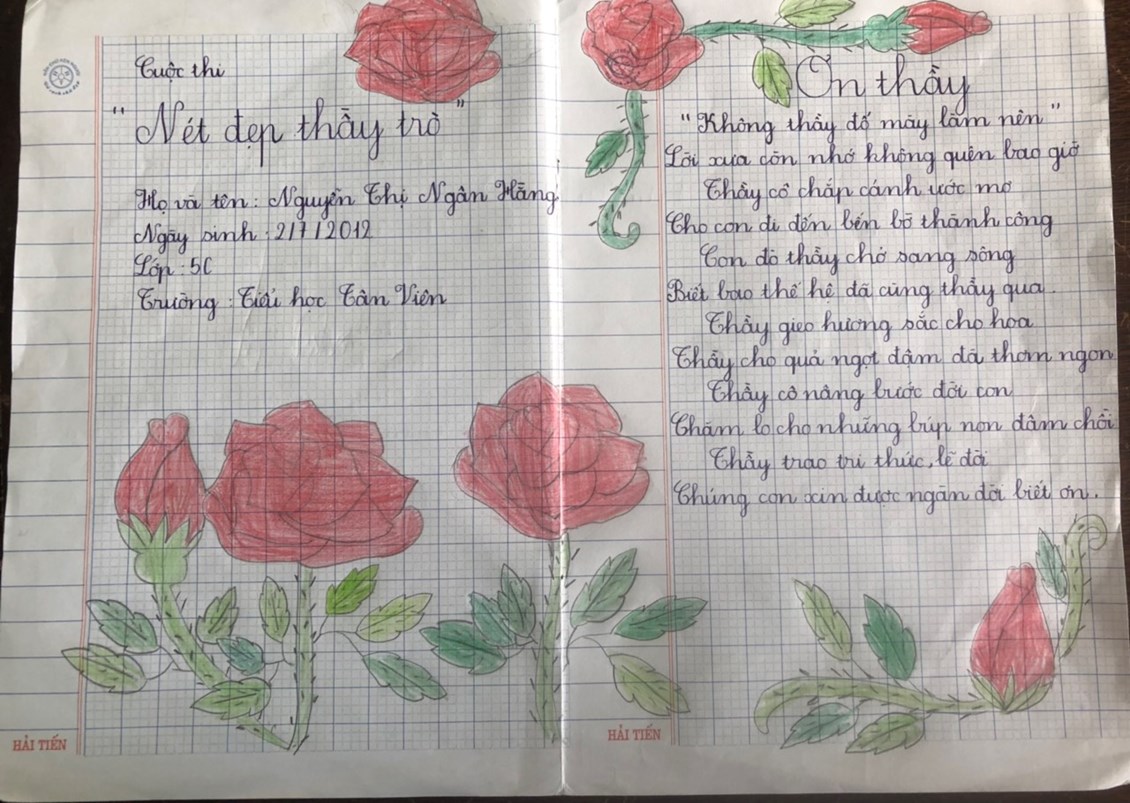 Cuộc thi
"Nét đẹp thầy trò"
Họ và tên: Nguyễn Thị Ngân Hằng
Ngày sinh: 2/7/2012
Lớp: 5C
Trường: Tiểu học Tân Viên
HẢI TIẾN
Ơn thầy
"Không thầy đố mày làm nên"
Lời xưa còn nhớ không quên bao giờ
Thầy cô chắp cánh ước mơ
Cho con đi đến bến bờ thành công
Con đò thầy chở sang sông
Biết bao thế hệ đã cùng thầy qua.
Thầy gieo hương sắc cho hoa
Thầy cho quả ngọt đậm đà thơm ngon
Thầy cô nâng bước đời con
Chăm lo cho những búp non đâm chồi
Thầy trao tri thức, lẽ đời
Chúng con xin được ngàn đời biết ơn.
HẢI TIẾN